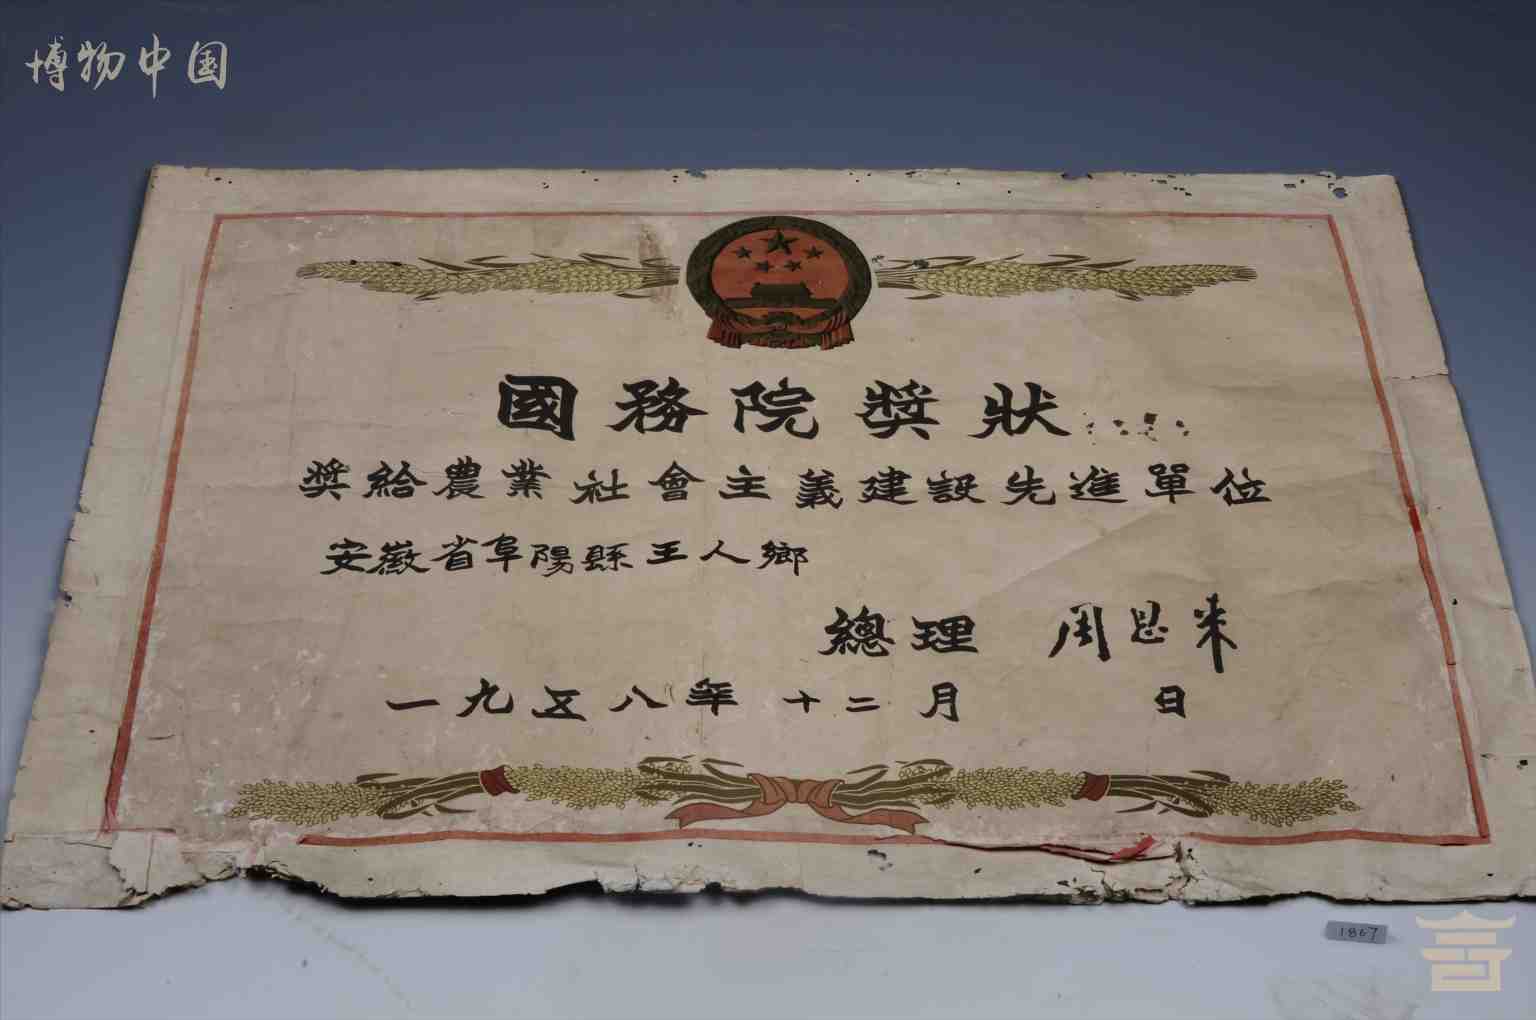 博物中国
國務院獎狀
獎給農業社會主義建設先進單位
安徽省阜陽縣王人鄉
總理 周恩来
一九五八年十二月 日
1867